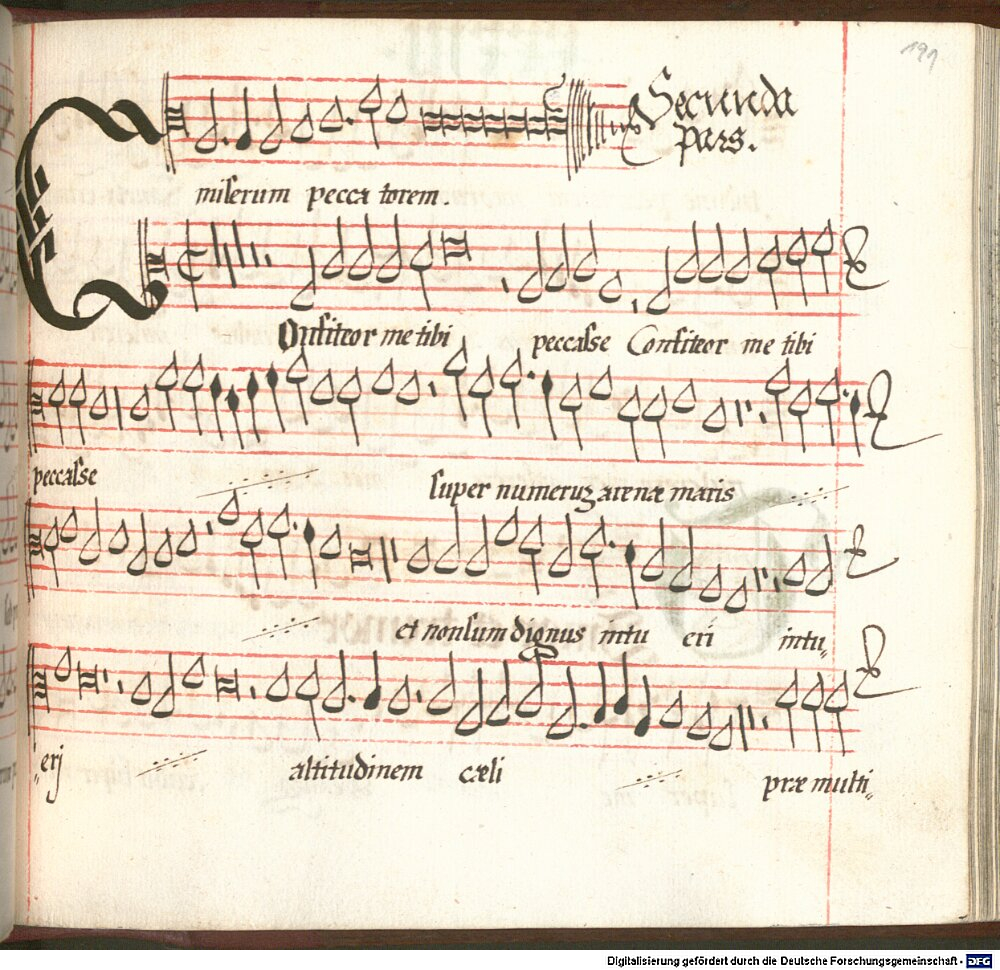 191
Secunda
pars.
miserum pecca torem.
Confiteor me tibi peccasse Confiteor me tibi
peccasse super numeruz arenæ maris
et non sum dignus intu eri intu„
„erj altitudinem cæli præ multi„
Digitalisierung gefördert durch die Deutsche Forschungsgemeinschaft - DFG